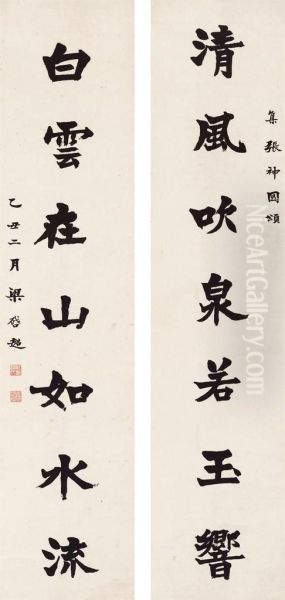 集張神囧頌
清風吹泉若玉響
白雲在山如水流
乙丑二月梁啓超
NiceArtGallery.com